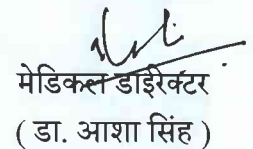 मेडिकल डाईरेक्टर
( डा. आशा सिंह )